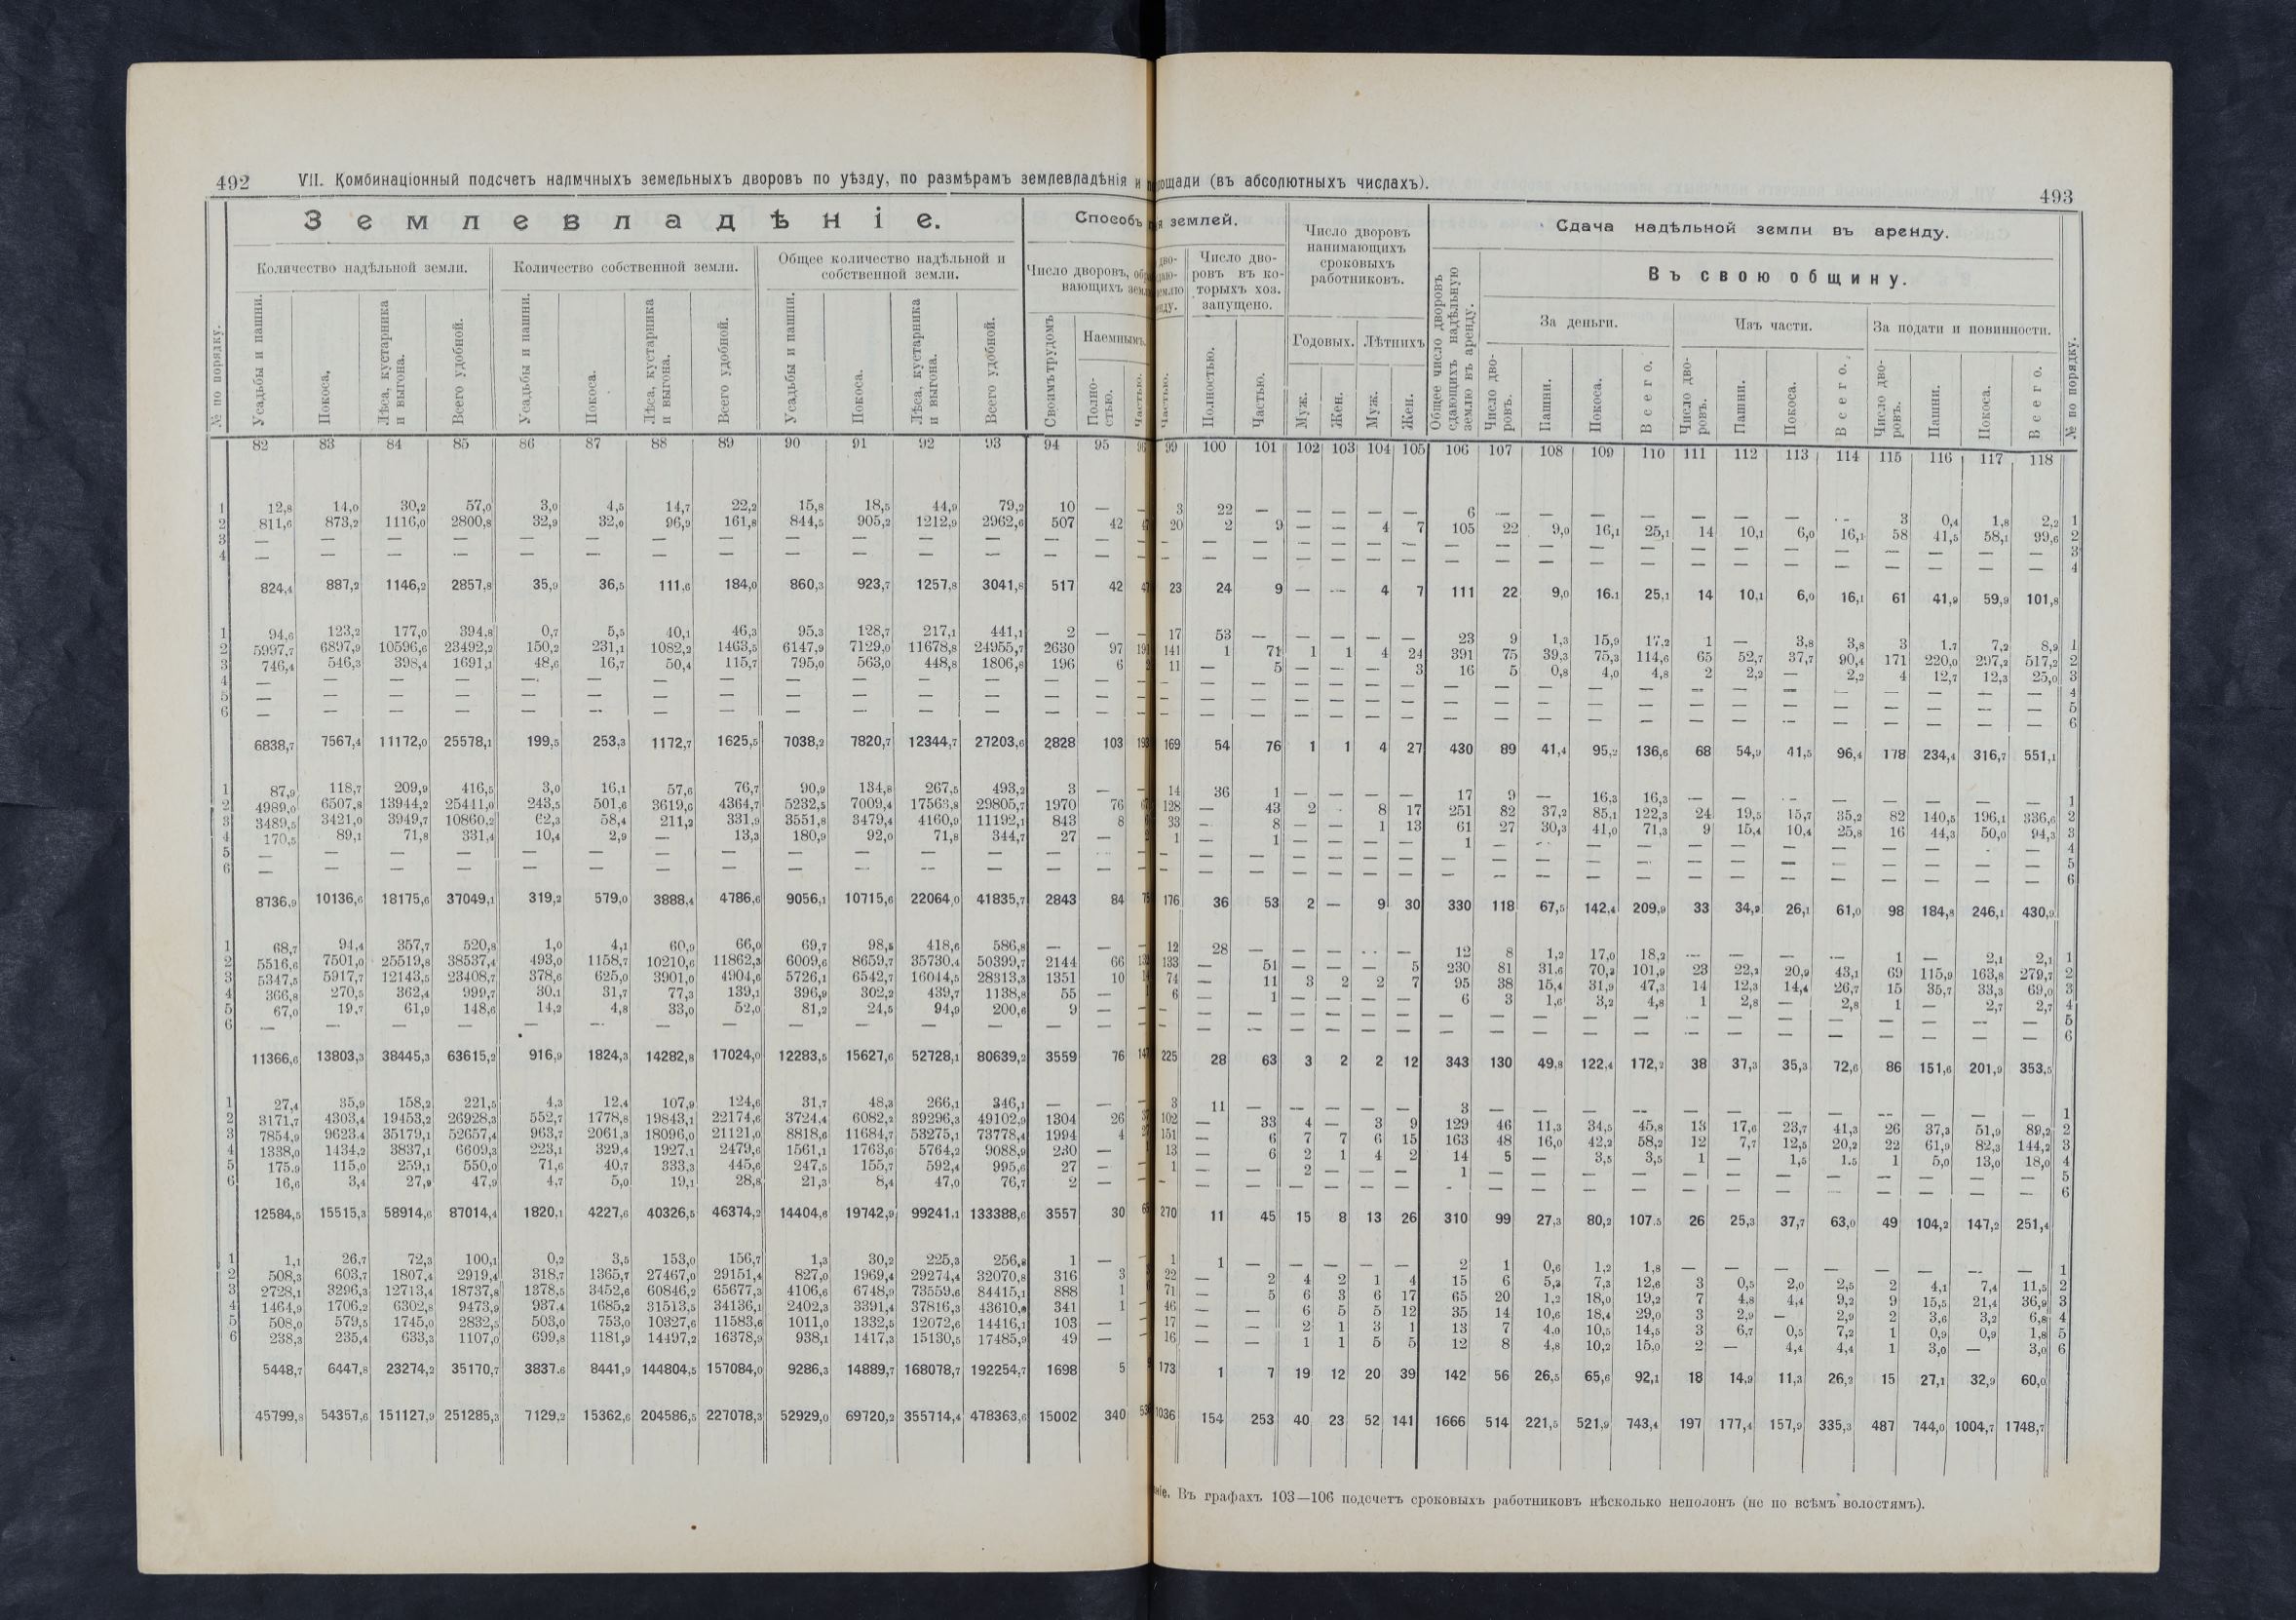 492 VII. Комбинаціонный подсчетъ наличныхъ земельныхъ дворовъ по уѣзду, по размѣрамъ землевладѣнія и
Землевладѣніе. Способъ
Количество надѣльной земли. Количество собственной земли. Общее количество надѣльной и собственной земли. Число дворовъ,
№ по порядку. Усадьбы и пашни. Покоса. Лѣса, кустарника и выгона. Всего удобной. Усадьбы и пашни. Покоса. Лѣса, кустарника и выгона. Всего удобной. Усадьбы и пашни. Покоса. Лѣса, кустарника и выгона. Всего удобной. Своимъ трудомъ Наемнымъ. Полностью. Частью.
82 83 84 85 86 87 88 89 90 91 92 93 94 95
1 12,8 14,0 30,2 57,0 3,0 4,5 14,7 22,2 15,8 18,5 44,9 79,2 10 —
2 811,6 873,2 1116,0 2800,8 32,9 32,0 96,9 161,8 844,5 905,2 1212,9 2962,6 507 42
3 — — — — — — — — — — — — — —
4 — — — — — — — — — — — — — —
824,4 887,2 1146,2 2857,8 35,9 36,5 111,6 184,0 860,3 923,7 1257,8 3041,8 517 42
1 94,6 123,2 177,0 394,8 0,7 5,5 40,1 46,3 95,3 128,7 217,1 441,1 2 —
2 5997,7 6897,9 10596,6 23492,2 150,2 231,1 1082,2 1463,5 6147,9 7129,0 11678,8 24955,7 2630 97
3 746,4 546,3 398,4 1691,1 48,6 16,7 50,4 115,7 795,0 563,0 448,8 1806,8 196 6
4 — — — — — — — — — — — — — —
5 — — — — — — — — — — — — — —
6 — — — — — — — — — — — — — —
6838,7 7567,4 11172,0 25578,1 199,5 253,3 1172,7 1625,5 7038,2 7820,7 12344,7 27203,6 2828 103
1 87,9 118,7 209,9 416,5 3,0 16,1 57,6 76,7 90,9 134,8 267,5 493,2 3 —
2 4989,0 6507,8 13944,2 25411,0 243,5 501,6 3619,6 4364,7 5232,5 7009,4 17563,8 29805,7 1970 76
3 3489,5 3421,0 3949,7 10860,2 62,3 58,4 211,2 331,9 3551,8 3479,4 4160,9 11192,1 843 8
4 170,5 89,1 71,8 331,4 10,4 2,9 — 13,3 180,9 92,0 71,8 344,7 27 —
5 — — — — — — — — — — — — — —
6 — — — — — — — — — — — — — —
8736,9 10136,6 18175,6 37049,1 319,2 579,0 3888,4 4786,6 9056,1 10715,6 22064,0 41835,7 2843 84
1 68,7 94,4 357,7 520,8 1,0 4,1 60,9 66,0 69,7 98,5 418,6 586,8 — —
2 5516,6 7501,0 25519,8 38537,4 493,0 1158,7 10210,6 11862,3 6009,6 8659,7 35730,4 50399,7 2144 66
3 5347,5 5917,7 12143,5 23408,7 378,6 625,0 3901,0 4904,6 5726,1 6542,7 16044,5 28313,3 1351 10
4 366,8 270,5 362,4 999,7 30,1 31,7 77,3 139,1 396,9 302,2 439,7 1138,8 55 —
5 67,0 19,7 61,9 148,6 14,2 4,8 33,0 52,0 81,2 24,5 94,9 200,6 9 —
6 — — — — — — — — — — — — — —
11366,6 13803,3 38445,3 63615,2 916,9 1824,3 14282,8 17024,0 12283,5 15627,6 52728,1 80639,2 3559 76
1 27,4 35,9 158,2 221,5 4,3 12,4 107,9 124,6 31,7 48,3 266,1 346,1 — —
2 3171,7 4303,4 19453,2 26928,3 552,7 1778,8 19843,1 22174,6 3724,4 6082,2 39296,3 49102,9 1304 26
3 7854,9 9623,4 35179,1 52657,4 963,7 2061,3 18096,0 21121,0 8818,6 11684,7 53275,1 73778,4 1994 4
4 1338,0 1434,2 3837,1 6609,3 223,1 329,4 1927,1 2479,6 1561,1 1763,6 5764,2 9088,9 230 —
5 175,9 115,0 259,1 550,0 71,6 40,7 333,3 445,6 247,5 155,7 592,4 995,6 27 —
6 16,6 3,4 27,9 47,9 4,7 5,0 19,1 28,8 21,3 8,4 47,0 76,7 2 —
12584,5 15515,3 58914,6 87014,4 1820,1 4227,6 40326,5 46374,2 14404,6 19742,9 99241,1 133388,6 3557 30
1 1,1 26,7 72,3 100,1 0,2 3,5 153,0 156,7 1,3 30,2 225,3 256,8 1 —
2 508,3 603,7 1807,4 2919,4 318,7 1365,7 27467,0 29151,4 827,0 1969,4 29274,4 32070,8 316 3
3 2728,1 3296,3 12713,4 18737,8 1378,5 3452,6 60846,2 65677,3 4106,6 6748,9 73559,6 84415,1 888 1
4 1464,9 1706,2 6302,8 9473,9 937,4 1685,2 31513,5 34136,1 2402,3 3391,4 37816,3 43610,0 341 1
5 508,0 579,5 1745,0 2832,5 503,0 753,0 10327,6 11583,6 1011,0 1332,5 12072,6 14416,1 103 —
6 238,3 235,4 633,3 1107,0 699,8 1181,9 14497,2 16378,9 938,1 1417,3 15130,5 17485,9 49 —
5448,7 6447,8 23274,2 35170,7 3837,6 8441,9 144804,5 157084,0 9286,3 14889,7 168078,7 192254,7 1698 5
45799,8 54357,6 151127,9 251285,3 7129,2 15362,6 204586,5 227078,3 52929,0 69720,2 355714,4 478363,6 15002 340
(въ абсолютныхъ числахъ). 493
землей. Число дворовъ нанимающихъ сроковыхъ работниковъ. Сдача надѣльной земли въ аренду.
Число дворовъ въ которыхъ хоз. запущено. Общее число дворовъ сдающихъ надѣльную землю въ аренду. Въ свою общину.
Годовыхъ. Лѣтнихъ За деньги. Изъ части. За подати и повинности.
Частью. Полностью. Частью. Муж. Жен. Муж. Жен. Число дворовъ. Пашни. Покоса. Всего. Число дворовъ. Пашни. Покоса. Всего. Число дворовъ. Пашни. Покоса. Всего. № по порядку.
99 100 101 102 103 104 105 106 107 108 109 110 111 112 113 114 115 116 117 118
3 22 — — — — — 6 — — — — — — — — 3 0,4 1,8 2,2 1
20 2 9 — — 4 7 105 22 9,0 16,1 25,1 14 10,1 6,0 16,1 58 41,5 58,1 99,6 2
— — — — — — — — — — — — — — — — — — — — 3
— — — — — — — — — — — — — — — — — — — — 4
23 24 9 — — 4 7 111 22 9,0 16,1 25,1 14 10,1 6,0 16,1 61 41,9 59,9 101,8
17 53 — — — — — 23 9 1,3 15,9 17,2 1 — 3,8 3,8 3 1,7 7,2 8,9 1
141 1 71 1 1 4 24 391 75 39,3 75,3 114,6 65 52,7 37,7 90,4 171 220,0 297,2 517,2 2
11 — 5 — — — 3 16 5 0,8 4,0 4,8 2 2,2 — 2,2 4 12,7 12,3 25,0 3
— — — — — — — — — — — — — — — — — — — — 4
— — — — — — — — — — — — — — — — — — — — 5
— — — — — — — — — — — — — — — — — — — — 6
169 54 76 1 1 4 27 430 89 41,4 95,2 136,6 68 54,9 41,5 96,4 178 234,4 316,7 551,1
14 36 1 — — — — 17 9 — 16,3 16,3 — — — — — — — — 1
128 — 43 2 - 8 17 251 82 37,2 85,1 122,3 24 19,5 15,7 35,2 82 140,5 196,1 336,6 2
33 — 8 — — 1 13 61 27 30,3 41,0 71,3 9 15,4 10,4 25,8 16 44,3 50,0 94,3 3
1 — 1 — — — — 1 — — — — — — — — — — — — 4
— — — — — — — — — — — — — — — — — — — — 5
— — — — — — — — — — — — — — — — — — — — 6
176 36 53 2 — 9 30 330 118 67,5 142,4 209,9 33 34,9 26,1 61,0 98 184,8 246,1 430,9
12 28 — — — — — 12 8 1,2 17,0 18,2 — — — — 1 — 2,1 2,1 1
133 — 51 — — — 5 230 81 31,6 70,3 101,9 23 22,2 20,9 43,1 69 115,9 163,8 279,7 2
74 — 11 3 2 2 7 95 38 15,4 31,9 47,3 14 12,3 14,4 26,7 15 35,7 33,3 69,0 3
6 — 1 — — — — 6 3 1,6 3,2 4,8 1 2,8 — 2,8 1 — 2,7 2,7 4
— — — — — — — — — — — — — — — — — — — — 5
— — — — — — — — — — — — — — — — — — — — 6
225 28 63 3 2 2 12 343 130 49,8 122,4 172,2 38 37,3 35,3 72,6 86 151,6 201,9 353,5
3 11 — — — — — 3 — — — — — — — — — — — — 1
102 — 33 4 — 3 9 129 46 11,3 34,5 45,8 13 17,6 23,7 41,3 26 37,3 51,9 89,2 2
151 — 6 7 7 6 15 163 48 16,0 42,2 58,2 12 7,7 12,5 20,2 22 61,9 82,3 144,2 3
13 — 6 2 1 4 2 14 5 — 3,5 3,5 1 — 1,5 1,5 1 5,0 13,0 18,0 4
1 — — 2 — — — 1 — — — — — — — — — — — — 5
— — — — — — — — — — — — — — — — — — — — 6
270 11 45 15 8 13 26 310 99 27,3 80,2 107,5 26 25,3 37,7 63,0 49 104,2 147,2 251,4
1 1 — — — — — 2 1 0,6 1,2 1,8 — — — — — — — — 1
22 — 2 4 2 1 4 15 6 5,3 7,3 12,6 3 0,5 2,0 2,5 2 4,1 7,4 11,5 2
71 — 5 6 3 6 17 65 20 1,2 18,0 19,2 7 4,8 4,4 9,2 9 15,5 21,4 36,9 3
46 — — 6 5 5 12 35 14 10,6 18,4 29,0 3 2,9 — 2,9 2 3,6 3,2 6,8 4
17 — — 2 1 3 1 13 7 4,0 10,5 14,5 3 6,7 0,5 7,2 1 0,9 0,9 1,8 5
16 — — 1 1 5 5 12 8 4,8 10,2 15,0 2 — 4,4 4,4 1 3,0 — 3,0 6
173 1 7 19 12 20 39 142 56 26,5 65,6 92,1 18 14,9 11,3 26,2 15 27,1 32,9 60,0
1036 154 253 40 23 52 141 1666 514 221,5 521,9 743,4 197 177,4 157,9 335,3 487 744,0 1004,7 1748,7
Въ графахъ 103—106 подсчетъ сроковыхъ работниковъ нѣсколько неполонъ (не по всѣмъ волостямъ).